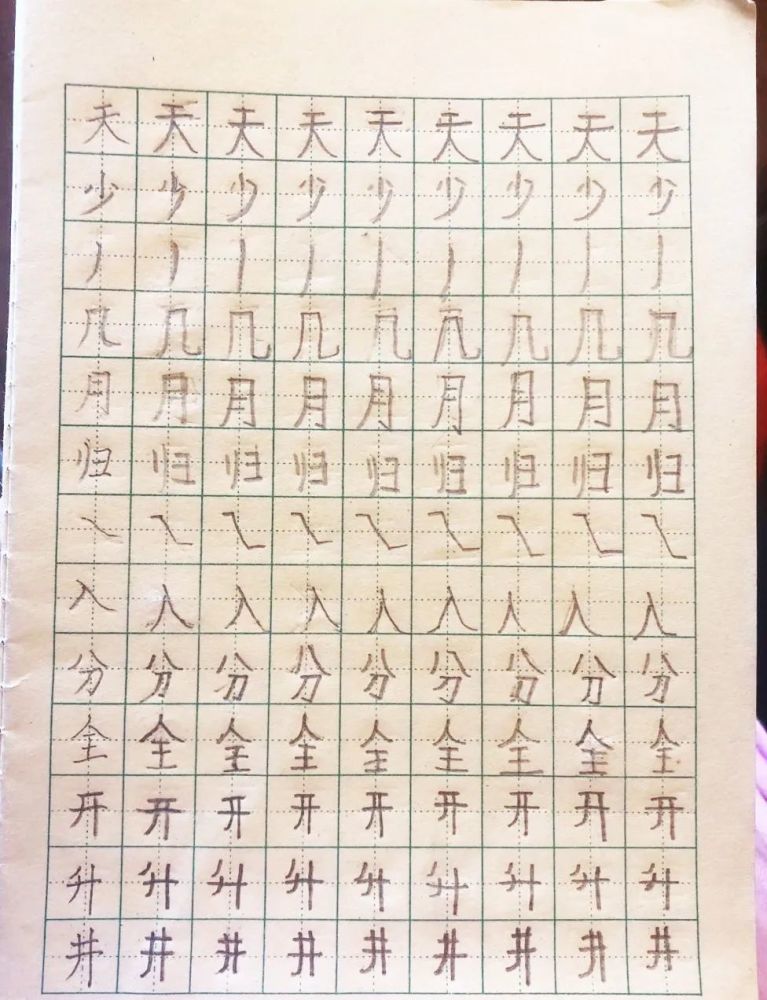 天 天 天 天 天 天 天 天 天
少 少 少 少 少 少 少 少 少
丿 丿 丿 丿 丿 丿 丿 丿 丿
几 几 几 几 几 几 几 几 几
月 月 月 月 月 月 月 月 月
归 归 归 归 归 归 归 归 归
㇏ ㇏ ㇏ ㇏ ㇏ ㇏ ㇏ ㇏ ㇏
入 入 入 入 入 入 入 入 入
分 分 分 分 分 分 分 分 分
全 全 全 全 全 全 全 全 全
开 开 开 开 开 开 开 开 开
升 升 升 升 升 升 升 升 升
井 井 井 井 井 井 井 井 井